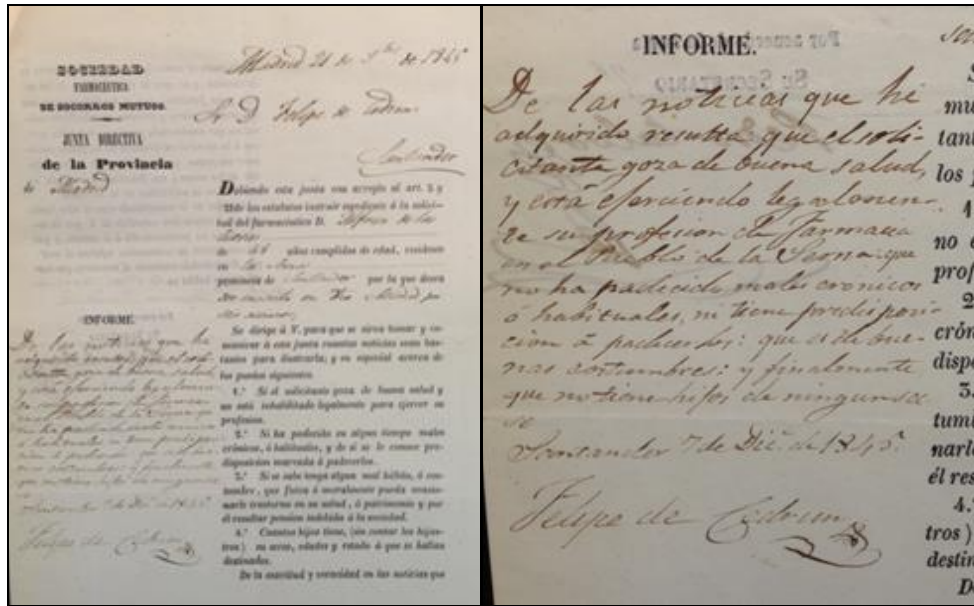 SOCIEDAD
FARMACEUTICA
DE SOCORROS MUTUOS.
JUNTA DIRECTIVA
de la Provincia
de Madrid
Madrid 21 de de 1845
Sr. D. Felipe de Cedrun
Santander
Debiendo esta junta con arreglo al art. 5 y
de los estatutos instruir expediente á la solici-
tud del farmacéutico D. de los
de años cumplidos de edad, residente
en la Serna
provincia de Santander por la que desea
Se dirige á V. para que se sirva tomar y co-
municar á esta junta cuantas noticias sean bas-
tantes para ilustrarla, y en especial acerca de
los puntos siguientes.
1.º Si el solicitante goza de buena salud y
no está rehabilitado legalmente para ejercer su
profesion.
2.º Si ha padecido en algun tiempo males
crónicos, ó habituales, y de si se le conoce pre-
disposicion marcada á padecerlos.
3.º Si se sabe tenga algun mal hábito, ó cos-
tumbre, que fisica ó moralmente pueda ocasio-
narle trastorno en su salud, ó patrimonio y por
él resultar pension indebida á la sociedad.
4.º Cuantos hijos tiene, (sin contar los hijas-
tros) su sexo, edades y estado á que se hallan
destinados.
De la exactitud y veracidad en las noticias que
INFORME.
De las noticias que he
adquirido resulta que el soli-
citante goza de buena salud,
y está ejerciendo legalmen-
te su profesion de Farmacia
en el Pueblo de la Serna: que
no ha padecido males cronicos
ó habituales, ni tiene predisposi-
cion á padecerlos: que es de bue-
nas costumbres: y finalmente
que no tiene hijos de ningun se-
xo
Santander 7 de Dic.e de 1845.
Felipe de Cedrun
INFORME.
De las noticias que he
adquirido resulta que el soli-
citante goza de buena salud,
y está ejerciendo legalmen-
te su profesion de Farmacia
en el Pueblo de la Serna: que
no ha padecido males cronicos
ó habituales, ni tiene predisposi-
cion á padecerlos: que es de bue-
nas costumbres: y finalmente
que no tiene hijos de ningun se-
xo
Santander 7 de Dic.e de 1845.
Felipe de Cedrun
mu
tant
los
1
no
prof
2
crón
dispo
3.
tum
narl
él res
4.
tros)
destin
D